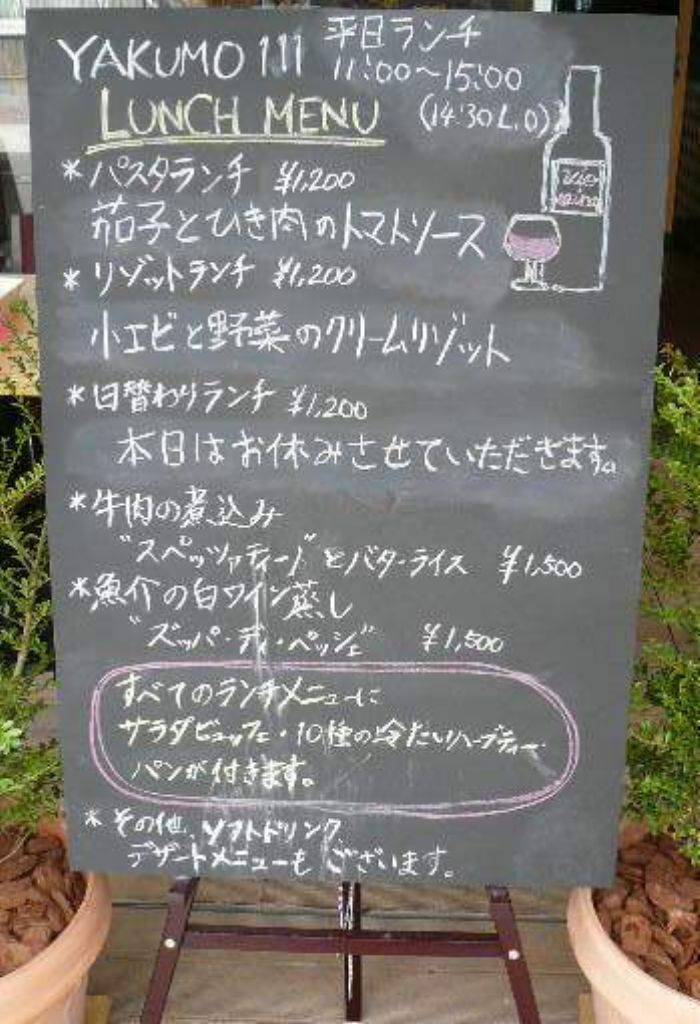 YAKUMO 111 平日ランチ
11:00〜15:00
LUNCH MENU (14:30 L.O)
*パスタランチ ¥1,200
茄子とひき肉のトマトソース
*リゾットランチ ¥1,200
小エビと野菜のクリームリゾット
*日替わりランチ ¥1,200
本日はお休みさせていただきます。
*牛肉の煮込み
"スペッツァティーノ"とバターライス ¥1,500
*魚介の白ワイン蒸し
"ズッパ・ディ・ペッシェ" ¥1,500
すべてのランチメニューに
サラダビュッフェ・10種の冷たいハーブティー・
パンが付きます。
*その他、ソフトドリンク
デザートメニューもございます。